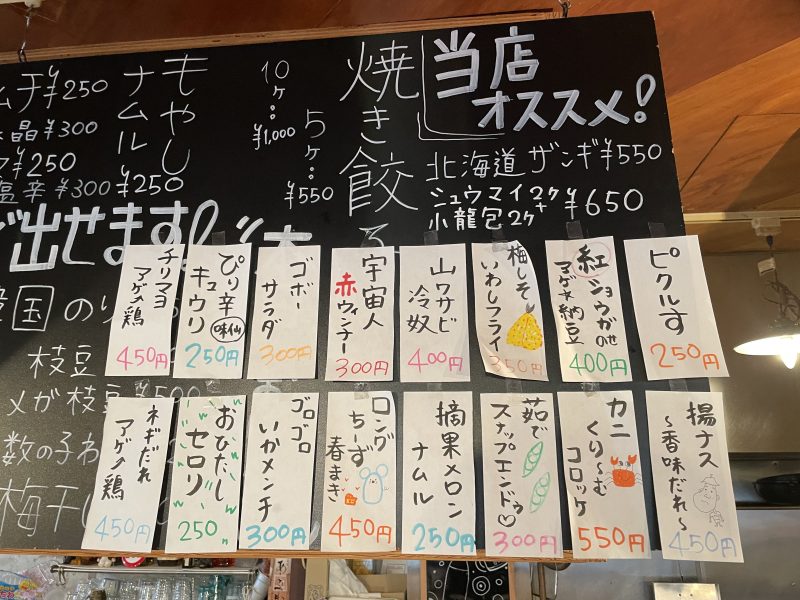 当店
オススメ!
北海道 ザンギ ¥550
シュウマイ2ケ+
小龍包2ケ
¥650
焼き餃子
5ケ:
¥550
10ケ:
¥1,000
もやし
ナムル
¥250
ムチ ¥250
晶 ¥300
¥250
塩辛 ¥300
出せます!
国のり
枝豆
メガ枝豆
数の子わ
梅干し
ピクルす
250円
紅ショウガのせ
アゲ納豆
400円
梅しそ
いわしフライ
350円
山ワサビ
冷奴
400円
宇宙人
赤ウィンナー
300円
ゴボー
サラダ
300円
ぴり辛
キュウリ
味仙
250円
チリマヨ
アゲ鶏
450円
揚ナス
~香味だれ~
450円
カニ
くり~む
コロッケ
550円
茹で
スナップエンドゥ♡
300円
摘果メロン
ナムル
250円
ロング
ちーず
春まき
450円
ゴロゴロ
いかメンチ
300円
おひたし
セロリ
250
ネギだれ
アゲ鶏
450円